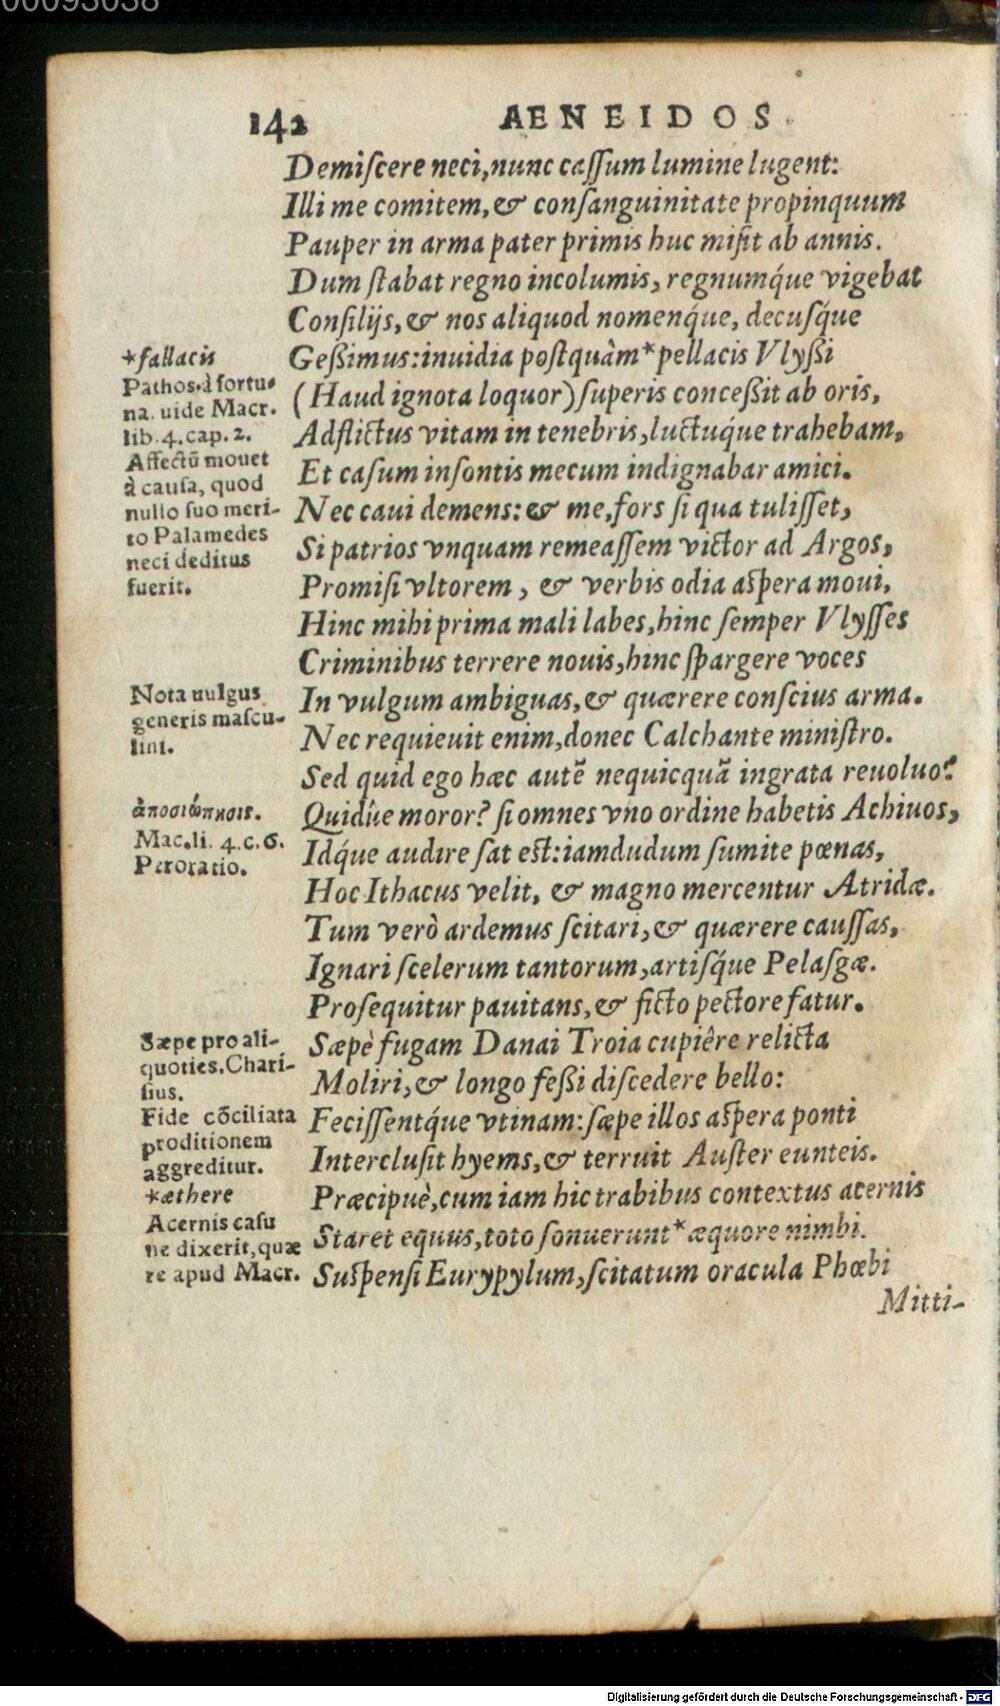 00093038
142 AENEIDOS
Demiſcere neci, nunc caſſum lumine lugent:
Illi me comitem, & conſanguinitate propinquum
Pauper in arma pater primis huc miſit ab annis.
Dum ſtabat regno incolumis, regnumq́ue vigebat
Conſilijs, & nos aliquod nomenq́ue, decuſq́ue
Geßimus: inuidia poſtquàm* pellacis Vlyßi
(Haud ignota loquor) ſuperis conceßit ab oris,
Adflictus vitam in tenebris, luctuq́ue trahebam,
Et caſum inſontis mecum indignabar amici.
Nec caui demens: & me, fors ſi qua tuliſſet,
Si patrios vnquam remeaſſem victor ad Argos,
Promiſi vltorem, & verbis odia aſpera moui.
Hinc mihi prima mali labes, hinc ſemper Vlyſſes
Criminibus terrere nouis, hinc ſpargere voces
In vulgum ambiguas, & quærere conſcius arma.
Nec requieuit enim, donec Calchante miniſtro.
Sed quid ego hæc autẽ nequicquã ingrata reuoluo?
Quidûe moror? ſi omnes vno ordine habetis Achiuos,
Idq́ue audire ſat eſt: iamdudum ſumite pœnas,
Hoc Ithacus velit, & magno mercentur Atridæ.
Tum verò ardemus ſcitari, & quærere cauſſas,
Ignari ſcelerum tantorum, artiſq́ue Pelaſgæ.
Proſequitur pauitans, & ficto pectore fatur.
Sæpè fugam Danai Troia cupiêre relicta
Moliri, & longo feßi diſcedere bello:
Feciſſentq́ue vtinam: ſæpe illos aſpera ponti
Intercluſit hyems, & terruit Auſter eunteis.
Præcipuè, cum iam hic trabibus contextus acernis
Staret equus, toto ſonuerunt* æquore nimbi.
Suſpenſi Eurypylum, ſcitatum oracula Phœbi
Mitti-
*fallacis
Pathos. à fortu-
na. uide Macr.
lib. 4. cap. 2.
Affectũ mouet
à cauſa, quod
nullo ſuo meri-
to Palamedes
neci deditus
fuerit.
Nota uulgus
generis maſcu-
lini.
ἀποσιώπησις.
Mac. li. 4. c. 6.
Peroratio.
Sæpe pro ali-
quoties. Chari-
ſius.
Fide cõciliata
proditionem
aggreditur.
*æthere
Acernis caſu
ne dixerit, quæ
re apud Macr.
Digitalisierung gefördert durch die Deutsche Forschungsgemeinschaft - DFG